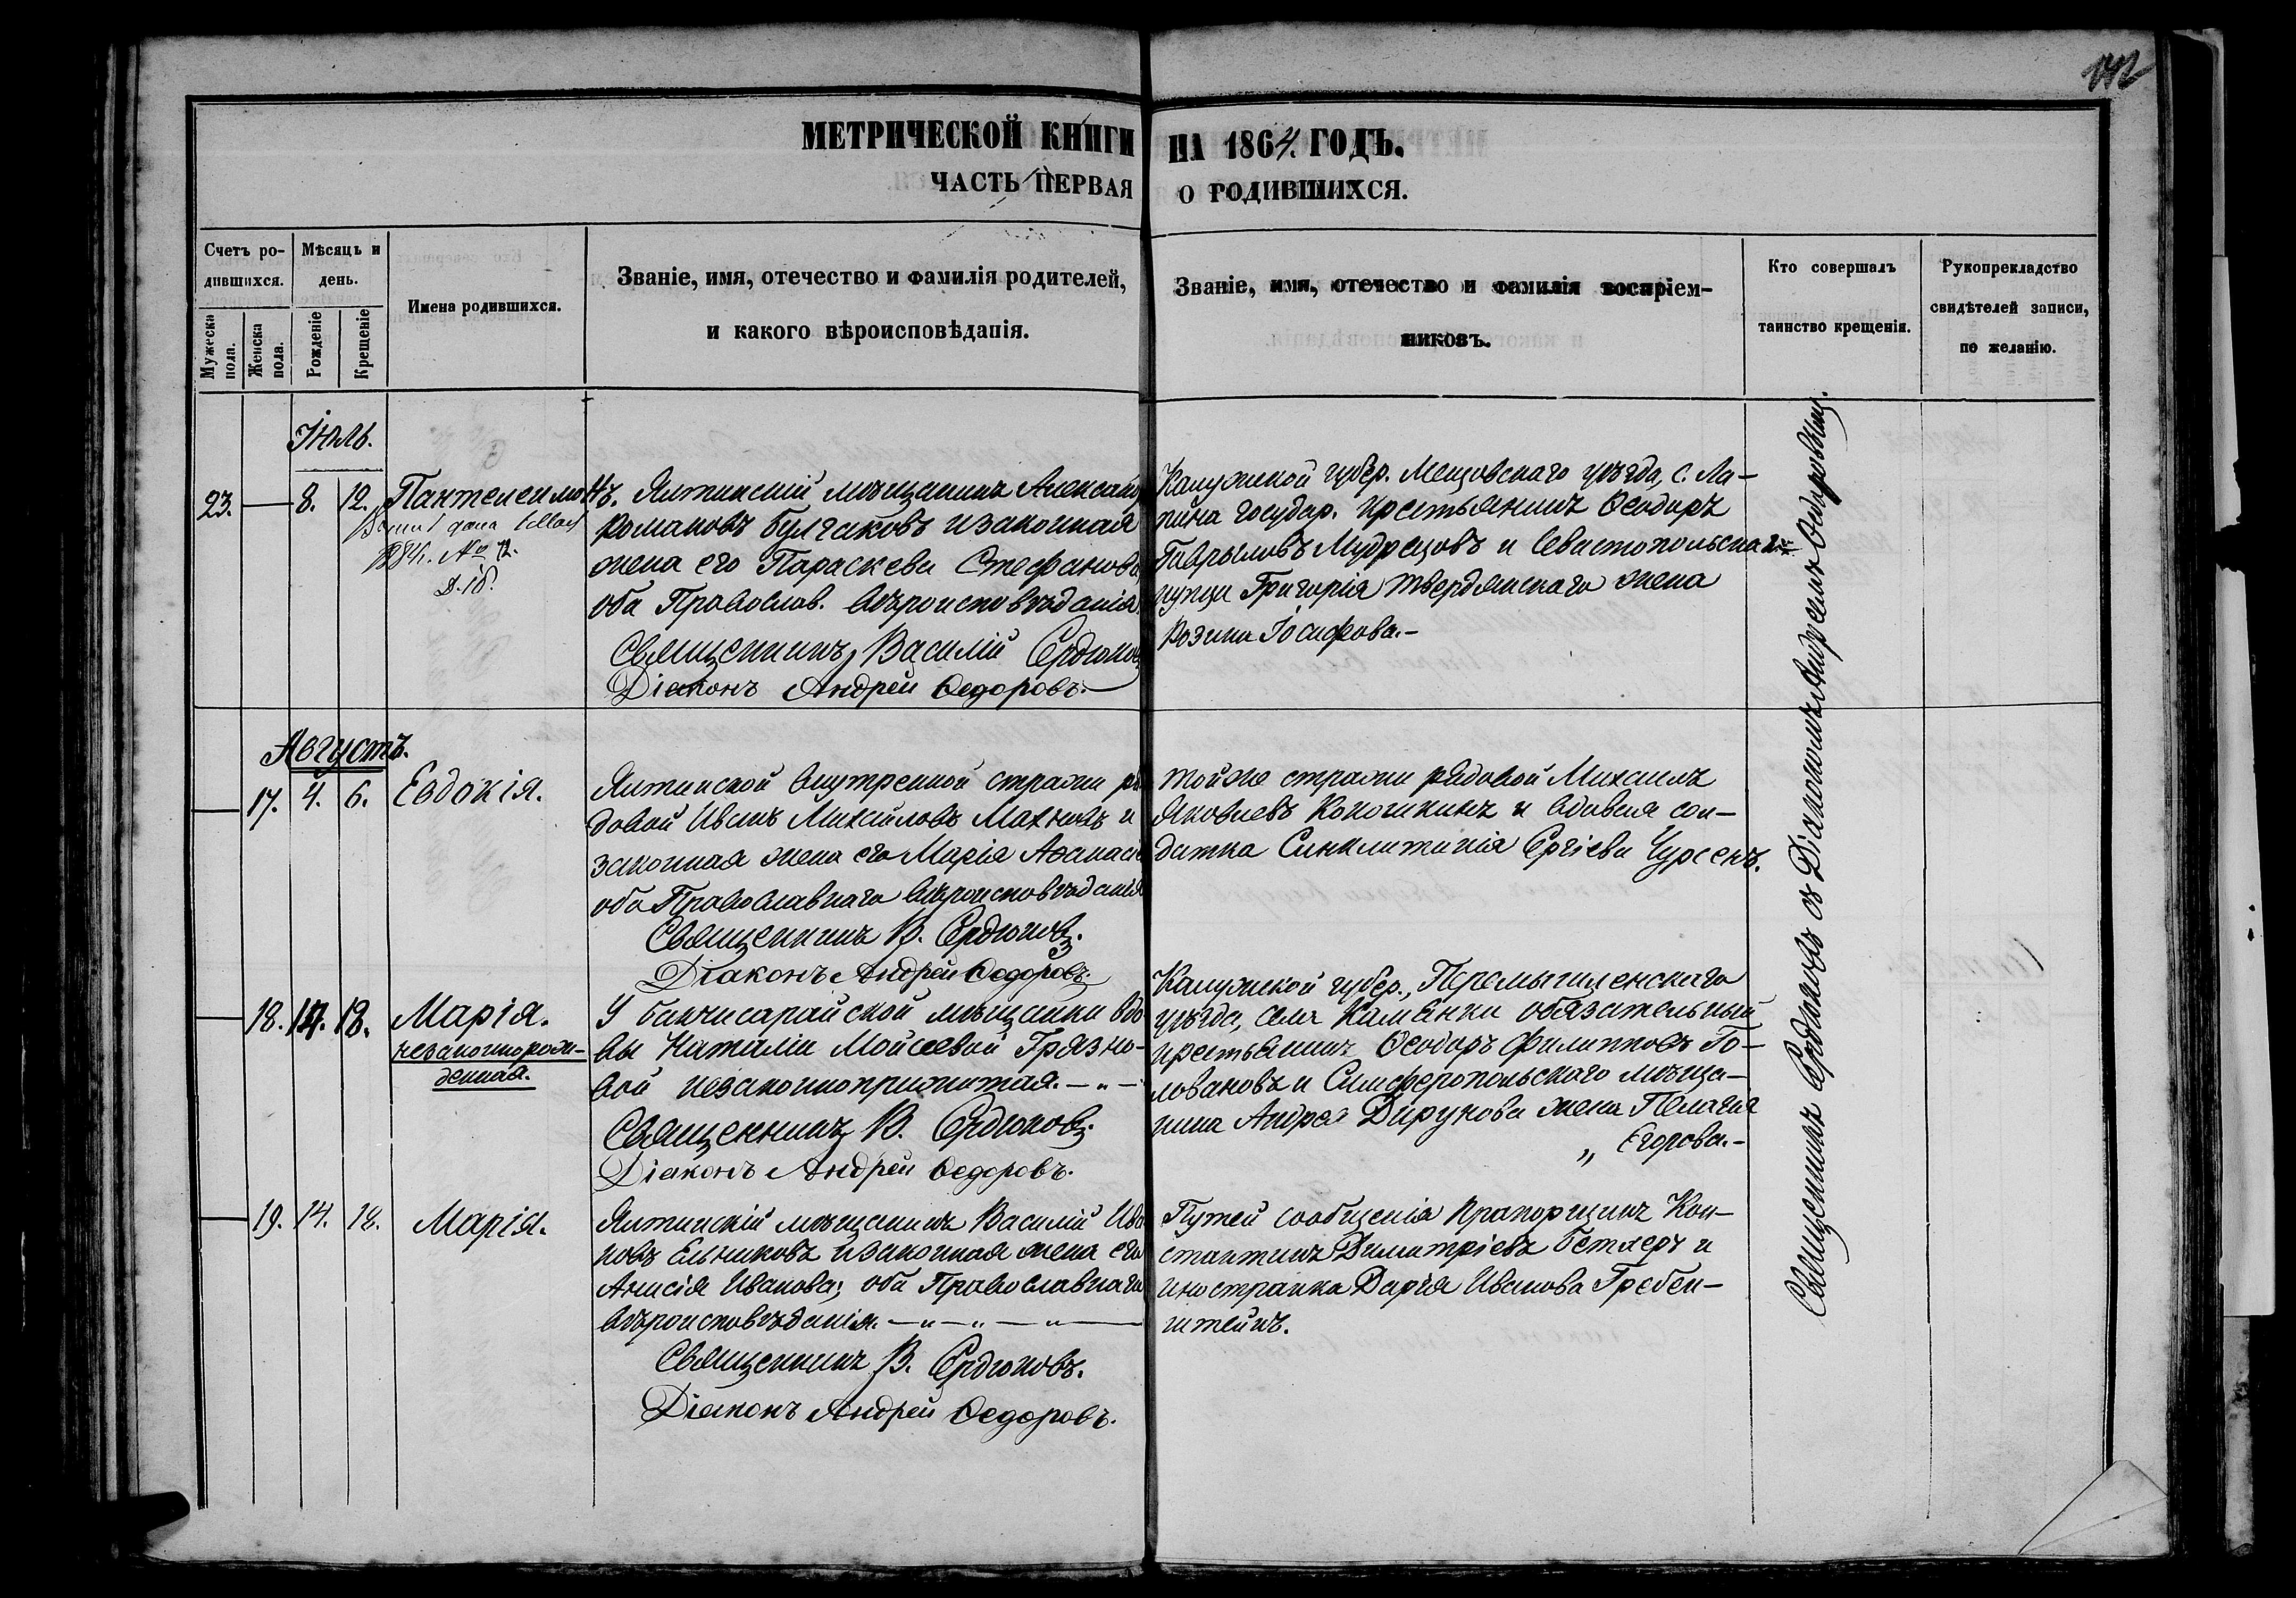 142
МЕТРИЧЕСКОЙ КНИГИ НА 1864. ГОДЪ.
ЧАСТЬ ПЕРВАЯ О РОДИВШИХСЯ.
Счетъ ро-
дившихся.
Мужеска
пола.
Женска
пола.
Мѣсяцъ и
день.
Рожденіе
Крещеніе
Имена родившихся.
Званіе, имя, отечество и фамилія родителей,
и какого вѣроисповѣданія.
Званіе, имя, отечество и фамилія воспріем-
никовъ.
Кто совершалъ
таинство крещенія.
Рукоприкладство
свидѣтелей записи,
по желанію.
Іюль.
23. 8. 12. Пантелеимонъ.
дана
№ 12.
Ялтинскій мѣщанинъ Александ
Романовъ Булгаковъ и законная
жена его Параскева Стефанова
оба Православ. вѣроисповѣданія
Священникъ Василій Сердюковъ
Діаконъ Андрей Ѳедоровъ.
Калужской губер. Мещовскаго уѣзда, с. Ла-
пина государ. крестьянинъ Ѳеодоръ
Гавриловъ Мудрецовъ и Севастопольскаго
купца Григорія Твердянскаго жена
Розина Іосифова.
Августъ.
17. 4. 6. Евдокія.
Ялтинской внутренней стражи ря
довой Иванъ Михайловъ Махновъ и
законная жена его Марія Аѳанась
оба Православнаго вѣроисповѣданія
Священникъ В. Сердюковъ.
Діаконъ Андрей Ѳедоровъ.
Той же стражи рядовой Михаилъ
Яковлевъ Коношкинъ и вдовая сол-
датка Синклитикія Сергіева Чурсенъ.
18. 14. 18. Марія.
незаконнорож-
денная.
У бахчисарайской мѣщанки вдо
вы Наталіи Мойсеевой Грязно-
вой незаконноприжитая.
Священникъ В. Сердюковъ.
Діаконъ Андрей Ѳедоровъ.
Калужской губер., Перемышленскаго
уѣзда, села Каменки обязательный
крестьянинъ Ѳеодоръ Филипповъ Го-
ловановъ и Симферопольскаго мѣща-
нина Андрея Дирунова жена Пелагія
Егорова.
19. 14. 18. Марія.
Ялтинскій мѣщанинъ Василій Ива
новъ Ельниковъ и законная жена его
Анисія Иванова; оба Православнаго
вѣроисповѣданія.
Священникъ В. Сердюковъ.
Діаконъ Андрей Ѳедоровъ.
Путей сообщенія Прапорщикъ Кон-
стантинъ Димитріевъ Бетлеръ и
иностранка Дарія Иванова Гребен-
штейнъ.
Священникъ Сердюковъ съ Діакономъ Андреемъ Ѳедоровымъ.